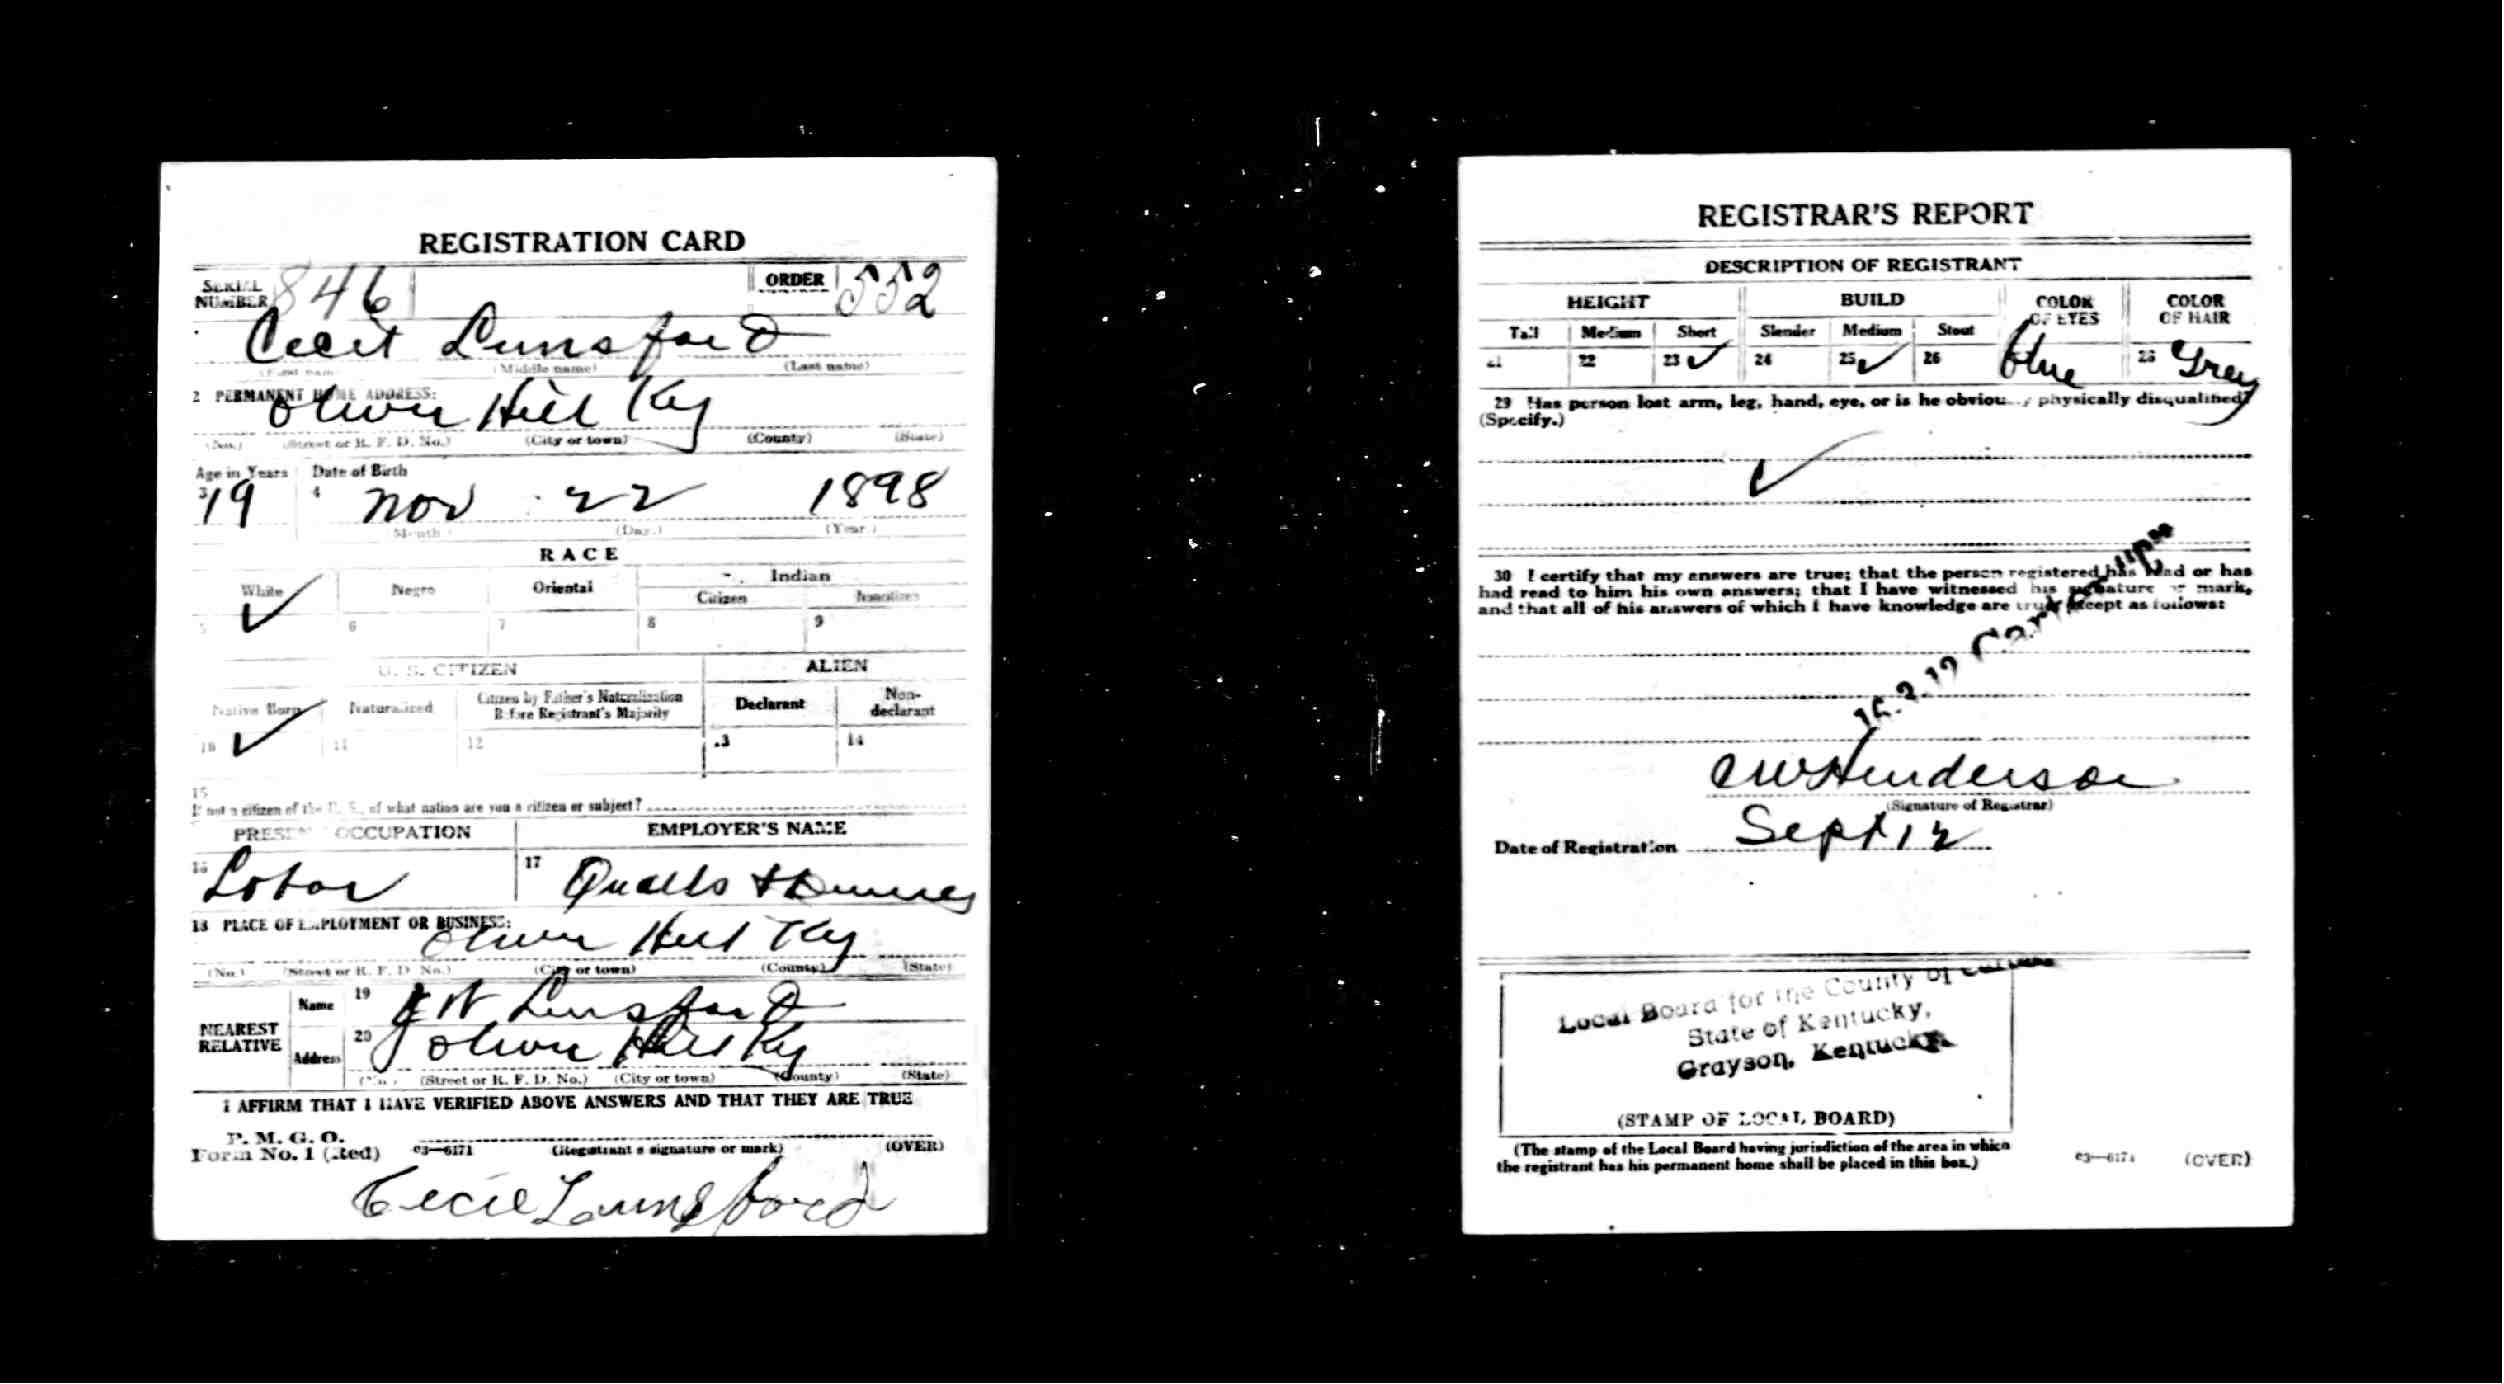 REGISTRATION CARD
SERIAL NUMBER 846 ORDER 552
Cecil Lunsford
(First name) (Middle name) (Last name)
2 PERMANENT HOME ADDRESS:
Olive Hill Ky
(No.) (Street or R. F. D. No.) (City or town) (County) (State)
Age in Years Date of Birth
3 19 4 Nov 22 1898
(Month.) (Day.) (Year.)
RACE
White Negro Oriental Indian
Citizen Noncitizen
5 ✓ 6 7 8 9
U. S. CITIZEN ALIEN
Native Born Naturalized Citizen by Father's Naturalization Before Registrant's Majority Declarant Non-declarant
10 ✓ 11 12 13 14
15
If not a citizen of the U. S., of what nation are you a citizen or subject?
PRESENT OCCUPATION EMPLOYER'S NAME
16 Labor 17 Qualls &
18 PLACE OF EMPLOYMENT OR BUSINESS:
Olive Hill Ky
(No.) (Street or R. F. D. No.) (City or town) (County) (State)
NEAREST RELATIVE Name 19 J W Lunsford
Address 20 Olive Hill Ky
(No.) (Street or R. F. D. No.) (City or town) (County) (State)
I AFFIRM THAT I HAVE VERIFIED ABOVE ANSWERS AND THAT THEY ARE TRUE
P. M. G. O.
Form No. 1 (Red) c3—6171 (Registrant's signature or mark) (OVER)
Cecil Lunsford
REGISTRAR'S REPORT
DESCRIPTION OF REGISTRANT
HEIGHT BUILD COLOR OF EYES COLOR OF HAIR
Tall Medium Short Slender Medium Stout
21 22 23 ✓ 24 25 ✓ 26 blue 28 Grey
29 Has person lost arm, leg, hand, eye, or is he obviously physically disqualified?
(Specify.)
✓
30 I certify that my answers are true; that the person registered has read or has
had read to him his own answers; that I have witnessed his signature or mark,
and that all of his answers of which I have knowledge are true, except as follows:
C W Henderson
(Signature of Registrar)
Date of Registration Sept 12
Local Board for the County of Carter
State of Kentucky,
Grayson, Kentucky
(STAMP OF LOCAL BOARD)
(The stamp of the Local Board having jurisdiction of the area in which
the registrant has his permanent home shall be placed in this box.)
c3—6171 (OVER)